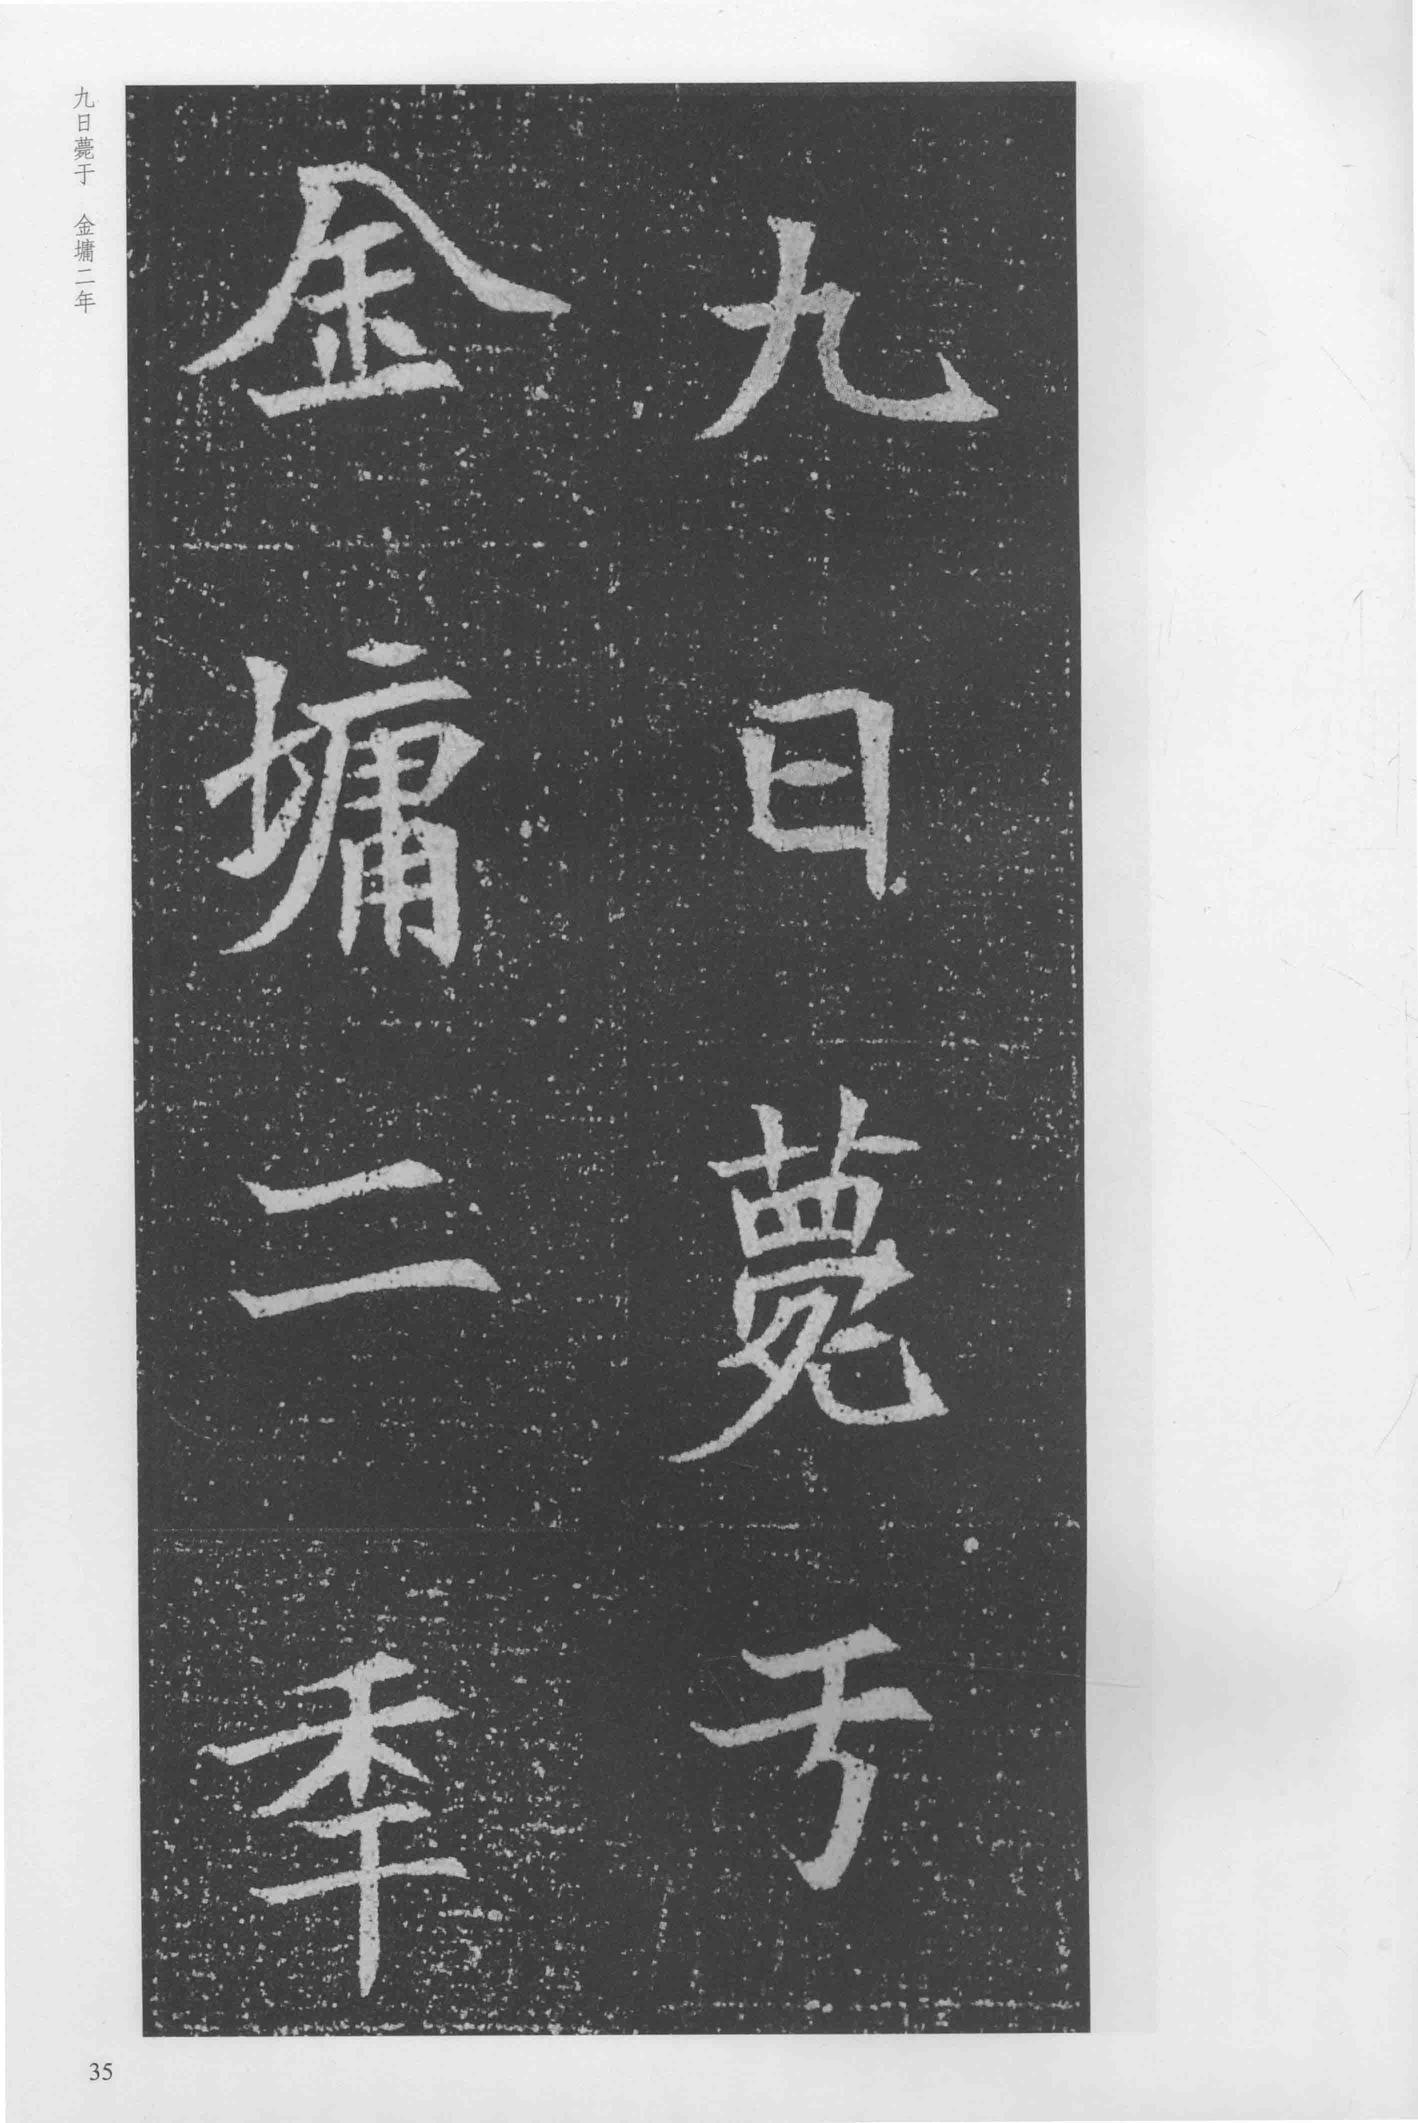 九日薨亐
金墉二秊
九日薨于　金墉二年
35